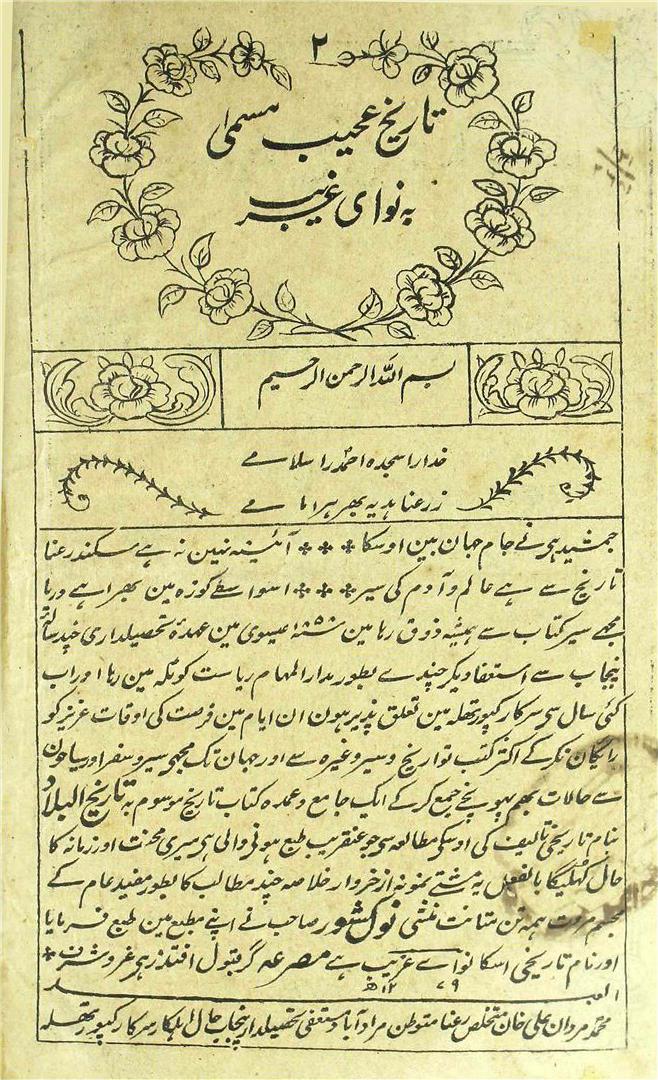 ۲
تاریخ عجیب مسمیٰ
به نوای غریب
بسم اللہ الرحمن الرحیم
خدا را سجده احمد را سلامے
ز رعنا ہدیہ بہر ہر اما مے
جمشید ہی نے جام جہان بین اوسکا * * * آئینہ نہین نہ ہے سکندر رعنا
تاریخ سے ہے عالم و آدم کی سیر * * * اسواسطے کوزہ مین بھرا ہے دریا
مجھے سیر کتاب سے ہمیشہ ذوق رہا مین سنہ عیسوی مین عہدۂ تحصیلداری
پنجاب سے استعفا دیکر چندے بطور مدار المہام ریاست کوٹلہ مین رہا اور اب
کئی سال سی سرکار کپورتھلہ مین تعلق پذیر ہون ان ایام مین فرصت کی اوقات عزیز کو
رایگان نکر کے اکثر کتب تواریخ و سیر وغیرہ سے اور جہان تک مجھی سیر و سفر اور سیاحون
سے حالات بہم پہونچے جمع کر کے ایک جامع و عمدہ کتاب تاریخ موسوم بہ تاریخ البلاد
بنام تاریخی تالیف کی اوسکی مطالعہ سی جو عنقریب طبع ہونی والی ہی میری محنت اور زمانہ کا
حال کھلیگا بالفعل یہ مشتے نمونہ از خروار خلاصہ چند مطالب کا بطور مفید عام کے
مجسم مروت ہمہ تن متانت منشی نولکشور صاحب نے اپنے مطبع مین طبع فرمایا
اور نام تاریخی اسکا نواے غریب ہے مصرعہ گر قبول افتد زہی عز و شرف *
۱۲۷۹ھ
العبد
محمد مردان علی خان متخلص رعنا متوطن مرادآباد مستعفی تحصیلدار پنجاب حال اہلکار سرکار کپورتھلہ